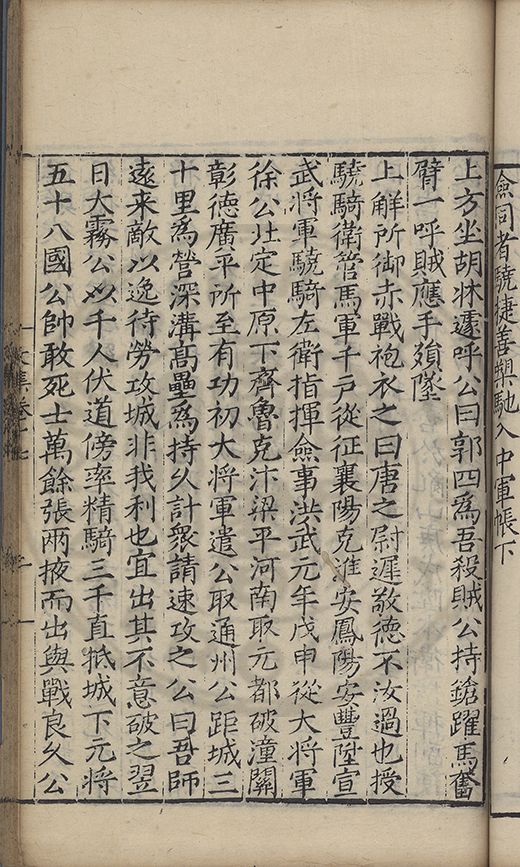 僉同者驍捷善槊馳入中軍帳下
上方坐胡牀遽呼公曰郭四為吾殺賊公持鎗躍馬奮
臂一呼賊應手殞墜
上解所御赤戰袍衣之曰唐之尉遲敬德不汝過也授
驍騎衛管馬軍千戶從征襄陽克淮安鳳陽安豐陞宣
武將軍驍騎左衛指揮僉事洪武元年戊申從大將軍
徐公北定中原下齊魯克汴梁平河南取元都破潼關
彰德廣平所至有功初大將軍遣公取通州公距城三
十里為營深溝高壘為持久計衆請速攻之公曰吾師
遠来敵以逸待勞攻城非我利也宜出其不意破之翌
日大霧公以千人伏道傍率精騎三千直抵城下元將
五十八國公帥敢死士萬餘張兩掖而出與戰良久公
文集卷十七